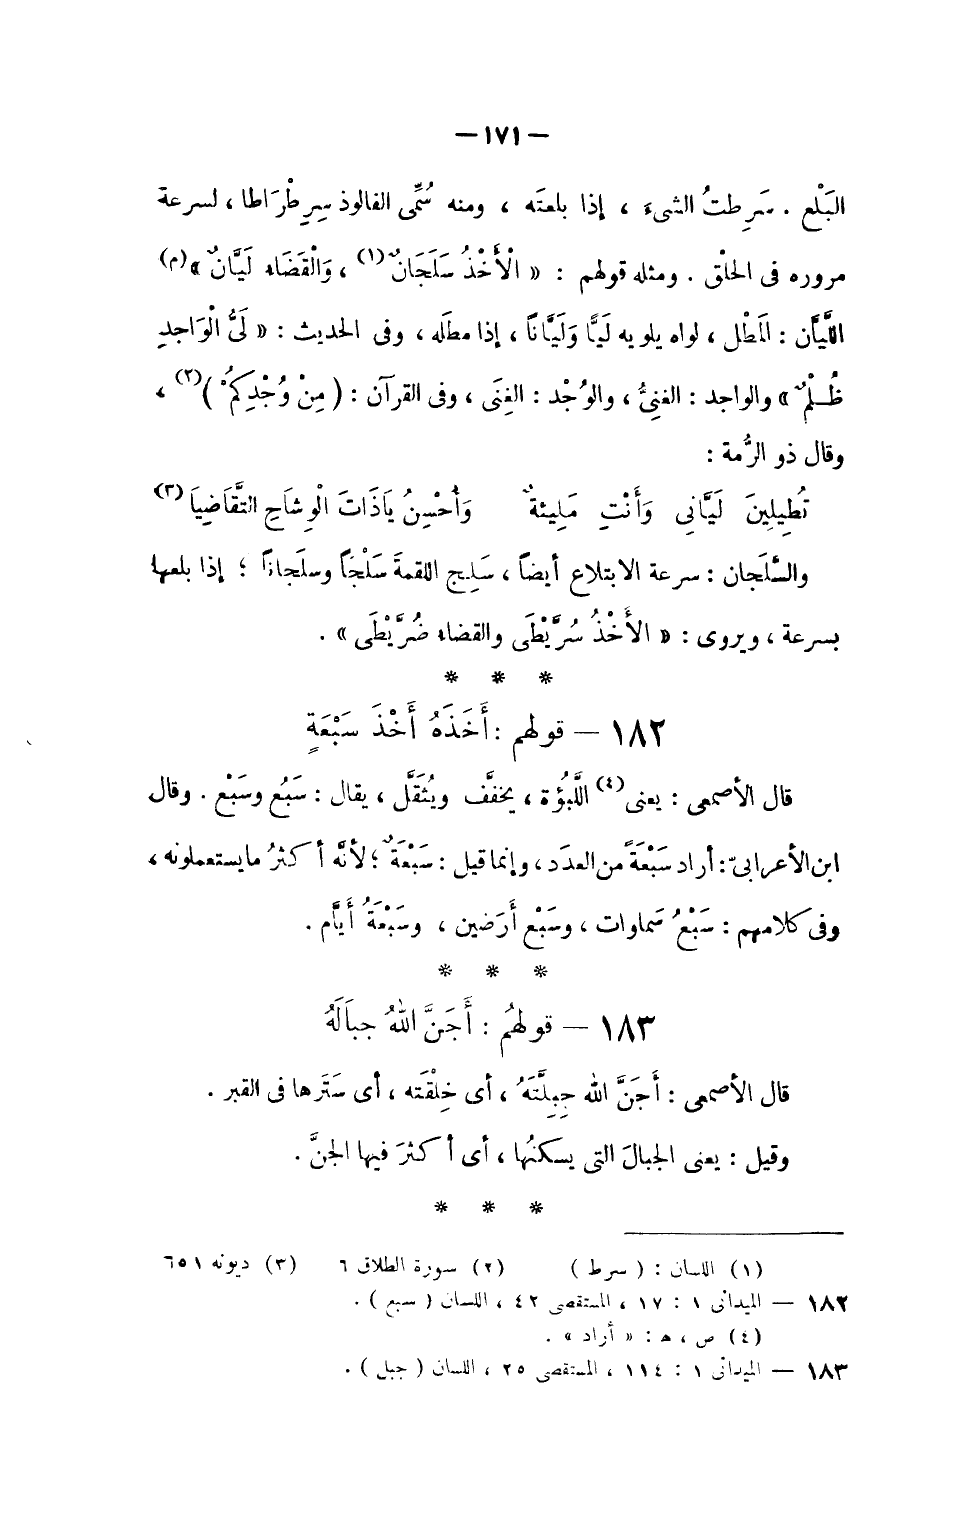 — ١٧١ —
البَلْع . سَرِطتُ الشىءَ ، إذا بلعتَه ، ومنه سُمِّى الفالوذ سِرِطْرَاطا ، لسرعة
مروره فى الحلْق . ومثله قولهم : « الْأَخْذُ سَلَجَانٌ(١) ، وَالْقَضَاء لَيَّانٌ »(م)
اللَّيَّان : المَطْل ، لواه يلويه لَيًّا وَلَيَّانًا ، إذا مطله ، وفى الحديث : « لَىُّ الْوَاجِدِ
ظُلْمٌ » والواجد : الغنىُّ ، والوُجْد : الغِنَى ، وفى القرآن : ( مِنْ وُجْدِكُمْ )(٢) ،
وقال ذو الرُّمة :
تُطِيلِينَ لَيَّانِى وَأَنْتِ مَلِيئةٌ وَأُحْسِنُ يَاذَاتَ الْوِشَاحِ التَّقَاضِيَا(٣)
والسَّلَجان : سرعة الابتلاع أيضاً ، سَلِج اللقمةَ سَلْجًا وسلَجانًا ؛ إذا بلعها
بسرعة ، ويروى : « الأَخْذُ سُرَّيْطَى والقضاء ضُرَّيْطَى » .
* * *
١٨٢ — قولهم : أَخَذَهُ أَخْذَ سَبْعَةٍ
قال الأصمعى : يعنى(٤) اللَّبُؤة ، يخفَّف ويُثَقَّل ، يقال : سَبُع وسَبْع . وقال
ابن الأعرابىّ : أراد سَبْعَةً من العدَد ، وإنما قيل : سَبْعَةٌ ؛ لأنَّه أكثرُ ما يستعملونه ،
وفى كلامهم : سَبْعُ سَماوات ، وسَبْع أَرَضين ، وسَبْعَةُ أيَّام .
* * *
١٨٣ — قولهُم : أَجَنَّ اللهُ جبالَهُ
قال الأصمعى : أَجَنَّ الله جِبِلَّتَهُ ، أى خِلْقَته ، أى سَتَرها فى القبر .
وقيل : يعنى الجبالَ التى يسكنُها ، أى أكثرَ فيها الجنَّ .
* * *
(١) اللسان : ( سرط ) (٢) سورة الطلاق ٦ (٣) ديونه ٦٥١
١٨٢ — الميدانى ١ : ١٧ ، المستقصى ٤٢ ، اللسان ( سبع ) .
(٤) ص ، هـ : « أراد » .
١٨٣ — الميدانى ١ : ١١٤ ، المستقصى ٢٥ ، اللسان ( جبل ) .